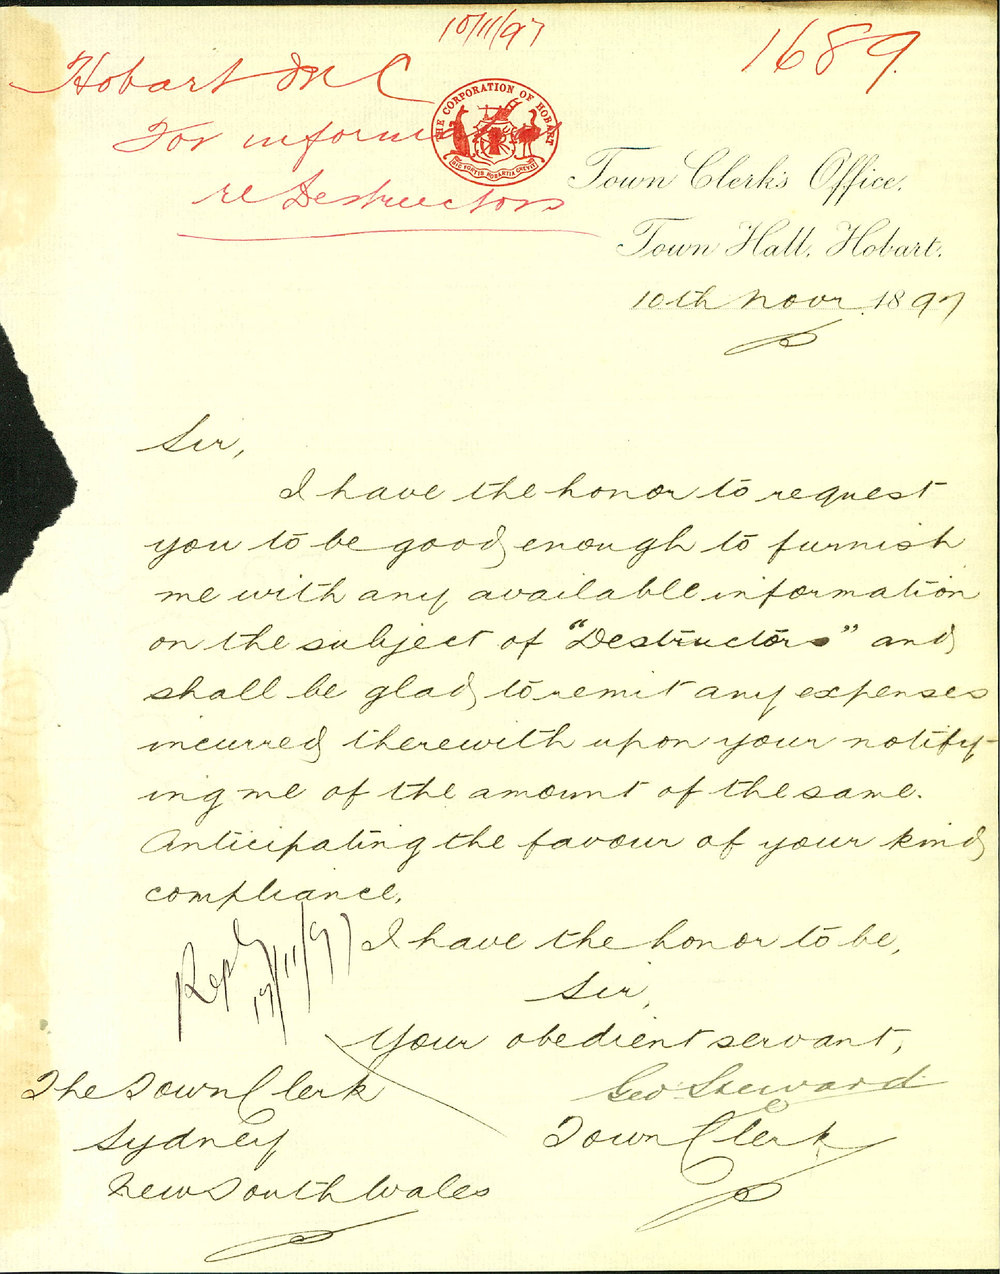 10/11/97
1689.
Hobart M C
For informa
re Destructors
THE CORPORATION OF HOBART
SIC FORTIS HOBARTIA CREVIT
Town Clerk's Office.
Town Hall, Hobart.
10th Novr. 1897
Sir,
I have the honor to request
you to be good enough to furnish
me with any available information
on the subject of "Destructors" and
shall be glad to remit any expenses
incurred therewith upon your notify-
ing me of the amount of the same.
Anticipating the favour of your kind
compliance.
I have the honor to be,
Sir,
Your obedient servant,
Geo. Steward
Town Clerk
Reply
17/11/97
The Town Clerk
Sydney
New South Wales